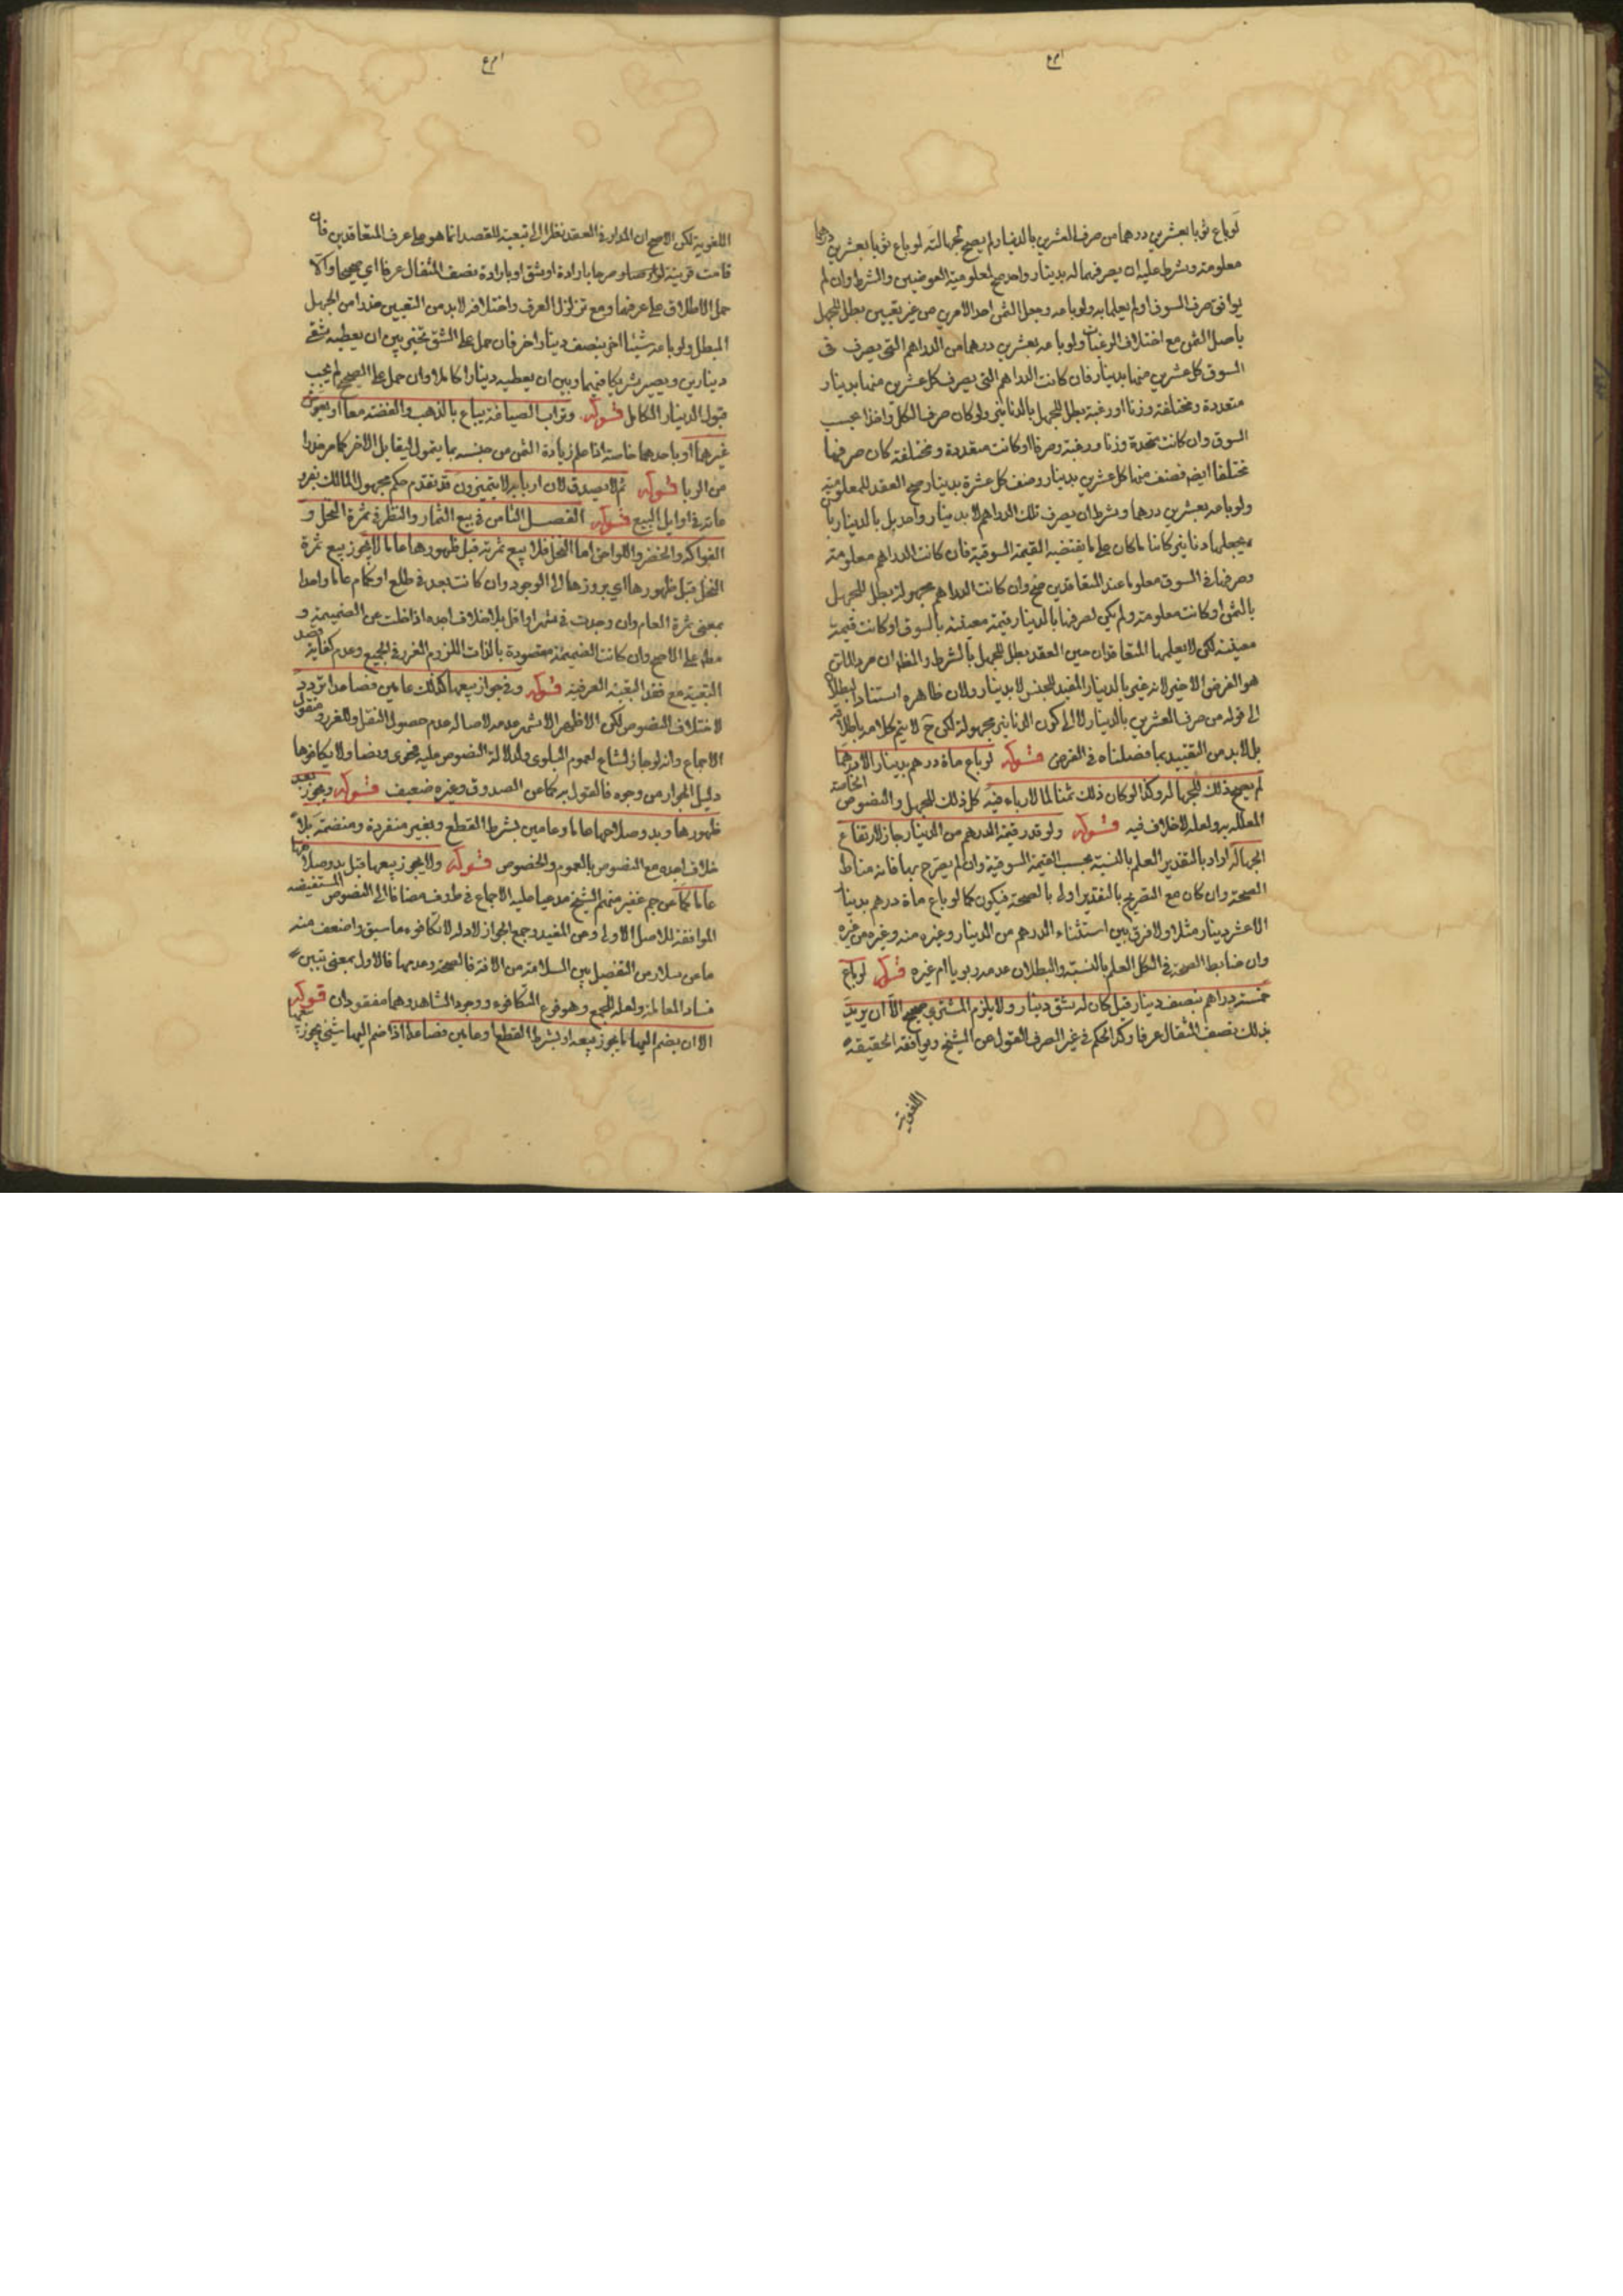 لو باع ثوبا بعشرين درهما من صرف العشرين بالدينار لم يصح لجهالته لو باع ثوبا بعشرين درهما
معلومة وشرط عليه ان يصرفها له بدينار واحد صح لمعلومية العوضين والشرط وان لم
يوافق صرف السوق او لم يعلما به ولو باعه وجعل الثمن احد الامرين من غير تعيين بطل للجهل
باصل الثمن مع اختلاف الرغبات ولو باعه بعشرين درهما من الدراهم التي يصرف في
السوق كل عشرين منها بدينار فان كانت الدراهم التي يصرف كل عشرين منها بدينار
متعددة ومختلفة وزنا او رغبة بطل للجهل بالدنانير ولو كان صرف الكل واحدا بحسب
السوق وان كانت متحدة وزنا ورغبة وصرفا او كانت متعددة ومختلفة كان صرفها
مختلفا ايضا فصنف منها كل عشرين بدينار وصنف كل عشرة بدينار صح العقد للمعلومية
ولو باعه بعشرين درهما وشرط ان يصرف تلك الدراهم لا بدينار واحد بل بالدينار بان
يجعلها دنانير كائنا ما كان على ما يقتضيه القيمة السوقية فان كانت الدراهم معلومة
وصرفها في السوق معلوما عند المتعاقدين صح وان كانت الدراهم مجهولة بطل للجهل
بالثمن او كانت معلومة ولم يكن لصرفها بالدينار قيمة معينة بالسوق او كانت قيمته
معينة لكن لا يعلمها المتعاقدان حين العقد بطل للجهل بالشرط والظ ان مراد الماتن
هو الفرض الاخير لانه عبر بالدينار المفيد للجنس لا بدينار ولان ظاهره استناد البطلان
الى قوله من صرف العشرين بالدينار لا الى كون الدنانير مجهولة لكن ح لا يتم كلامه باطلاقه
بل لا بد من التقييد بما فصلناه في الفرض قوله لو باع مائة درهم بدينار الا درهما
لم يصح ذلك للجهالة وكذا لو كان ذلك ثمنا لما لا رباء فيه كل ذلك للجهل والنصوص الخاصة
المعللة به ولعله لا خلاف فيه قوله ولو قدر قيمة الدرهم من الدينار جاز لارتفاع
الجهالة اراد بالتقدير العلم بالنسبة بحسب القيمة السوقية وان لم يصرح بها فانه مناط
الصحة وان كان مع التصريح بالتقدير اولى بالصحة فيكون كما لو باع مائة درهم بدينار
الا عشر دينار مثلا ولا فرق بين استثناء الدرهم من الدينار وغيره منه وغيره من غيره
وان ضابط الصحة في الكل العلم بالنسبة والبطلان عدمه ربويا ام غيره قوله لو باع
خمسة دراهم بنصف دينار قيل كان له شق دينار ولا يلزم المشتري صحيح الا ان يريد
بذلك نصف المثقال عرفا وكذا الحكم في غير الصرف القول عن الشيخ ويوافقه الحقيقة
اللغوية
اللغوية لكن الاصح ان المدار في العقد نظرا الى تبعيته للقصد انما هو على عرف المتعاقدين فان
قامت قرينة ولو خصاوصرحا بارادة او شق او بارادة نصف المثقال عرفا اي صحيحا والا
حمل الاطلاق على عرفها ومع تزلزل العرف واختلافه لا بد من التعيين حذرا من الجهل
المبطل ولو باعه شيئا اخر بنصف دينار اخر فان حمل على الشق تخير بين ان يعطيه شقي
دينارين ويصير شريكا فيهما وبين ان يعطيه دينارا كاملا وان حمل على الصحيح لم يجب
قبول الدينار الكامل قوله وتراب الصياغة يباع بالذهب والفضة معا او بعوض
غيرهما او باحدهما خاصة اذا علم زيادة الثمن من جنسه بما يتمول ليقابل الاخر كما مر حذرا
من الربا قوله ثم لا يصدق لان اربابه لا يتميزون قد تقدم حكم مجهول المالك بفروعاته
في اوايل البيع قوله الفصل الثامن في بيع الثمار والنظر في ثمرة النخل و
الفواكه والخضر واللواحق اما النخل فلا بيع ثمرته قبل ظهورها عاما لا يجوز بيع ثمرة
النخل قبل ظهورها اي بروزها الى الوجود وان كانت بعد في طلع او كمام عاما واحدا
بمعنى ثمرة العام وان وجدت في شهر او اقل بلا خلاف اجده اذا خلت عن الضميمة و
معه على الاصح وان كانت الضميمة مقصودة بالذات للزوم الغرر في الجميع وعدم كفاية قصد
التبعية مع فقد التبعية العرفية قوله وفي جواز بيعها كذلك عامين فصاعدا تردد
لاختلاف النصوص لكن الاظهر الاشهر عدمه لاصالة عدم حصول النقل وللغرر ومنقول
الاجماع وانه لو جاز لشاع لعموم البلوى ولدلالة النصوص عليه فحوى ونصا ولا يكافؤها
دليل الجواز من وجوه فالقول به كما عن الصدوق وغيره ضعيف قوله ويجوز بعد
ظهورها وبدو صلاحها عاما وعامين بشرط القطع وبغيره منفردة ومنضمة بلا
خلاف اجده مع النصوص بالعموم والخصوص قوله ولا يجوز بيعها قبل بدو صلاحها
عاما كما عن جم غفير منهم الشيخ مدعيا عليه الاجماع في ظ وف مضافا الى النصوص المستفيضة
الموافقة للاصل الاولى وعن المفيد وجمع الجواز لادلة لا تكافوء ما سبق واضعف منه
ما عن سلار من التفصيل بين السلامة من الافة فالصحة وعدمها فالاول بمعنى تبين
فساد المعاملة ولعله للجمع وهو فرع التكافوء ووجود الشاهد وهما مفقودان قوله
الا ان يضم اليها ما يجوز بيعه او بشرط القطع او عامين فصاعدا اذا ضم اليها شيئ يجوز بيعها